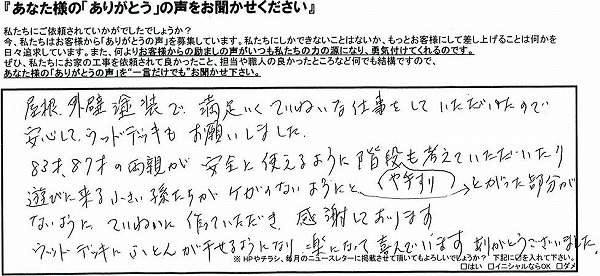 『あなた様の「ありがとう」の声をお聞かせください』
私たちにご依頼されていかがでしたでしょうか？
今、私たちはお客様から「ありがとうの声」を募集しています。私たちにしかできないことはないか、もっとお客様にして差し上げることは何かを
日々追求しています。また、何よりお客様からの励ましの声がいつも私たちの力の源になり、勇気付けてくれるのです。
ぜひ、私たちにお家の工事を依頼されて良かったこと、担当や職人の良かったところなど何でも結構ですので、
あなた様の「ありがとうの声」を“一言だけでも”お聞かせ下さい。
屋根、外壁塗装で、満足いくていねいな仕事をしていただけたので
安心して、ウッドデッキもお願いしました。
83才、87才の両親が安全に使えるように階段も考えていただいたり
遊びに来る小さい孫たちがケガのないようにと やすり とがった部分が
ないようにていねいに作っていただき、感謝しております
ウッドデッキにふとんが干せるようになり楽になって喜んでいます ありがとうございました。
※HPやチラシ、毎月のニュースレターに掲載させて頂いてもよろしいでしょうか？ 下記に☑を入れて下さい。
□はい □イニシャルならOK □ダメ